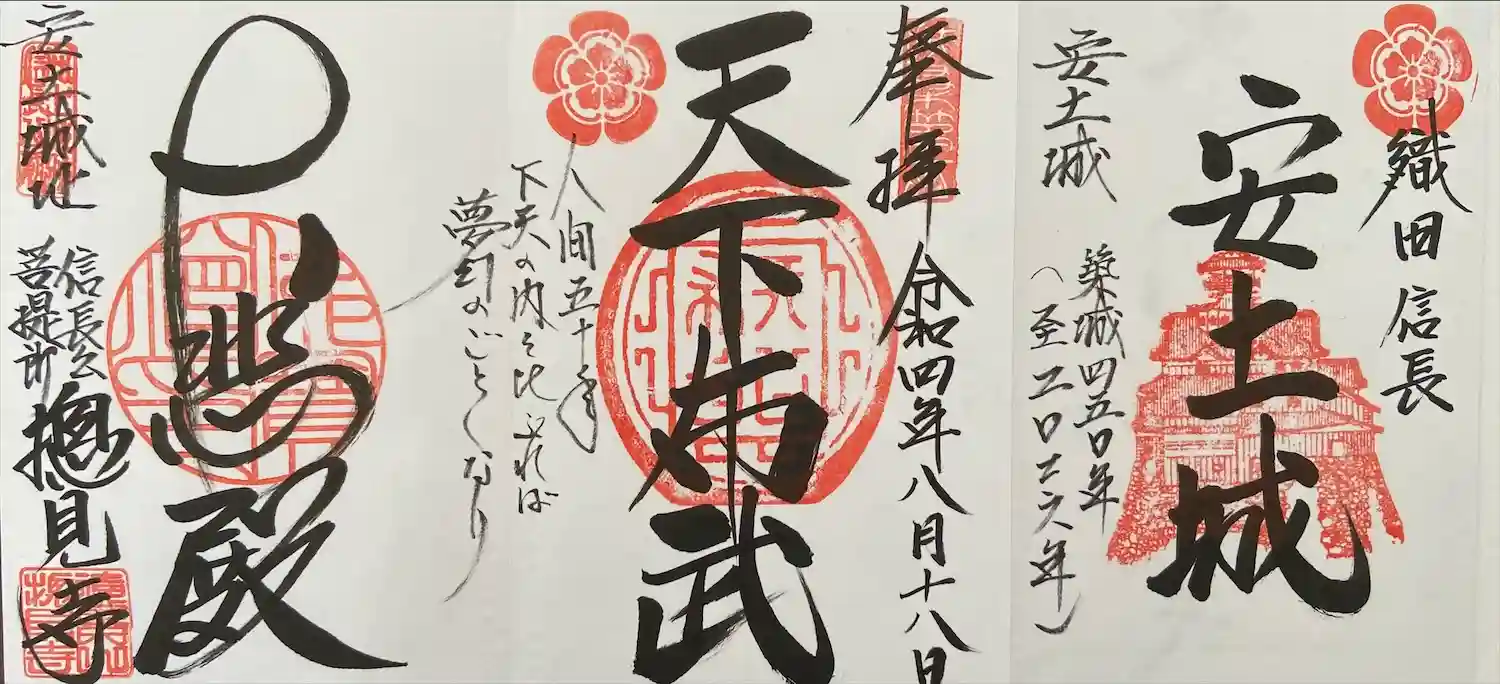 織田信長
安土城
安土城
築城四五〇年
(至二〇二六年)
奉拝 令和四年八月十八日
天下布武
人間五十年
下天の内を比ぶれば
夢幻のごとくなり
大悲殿
安土城址
信長公
菩提所
摠見寺